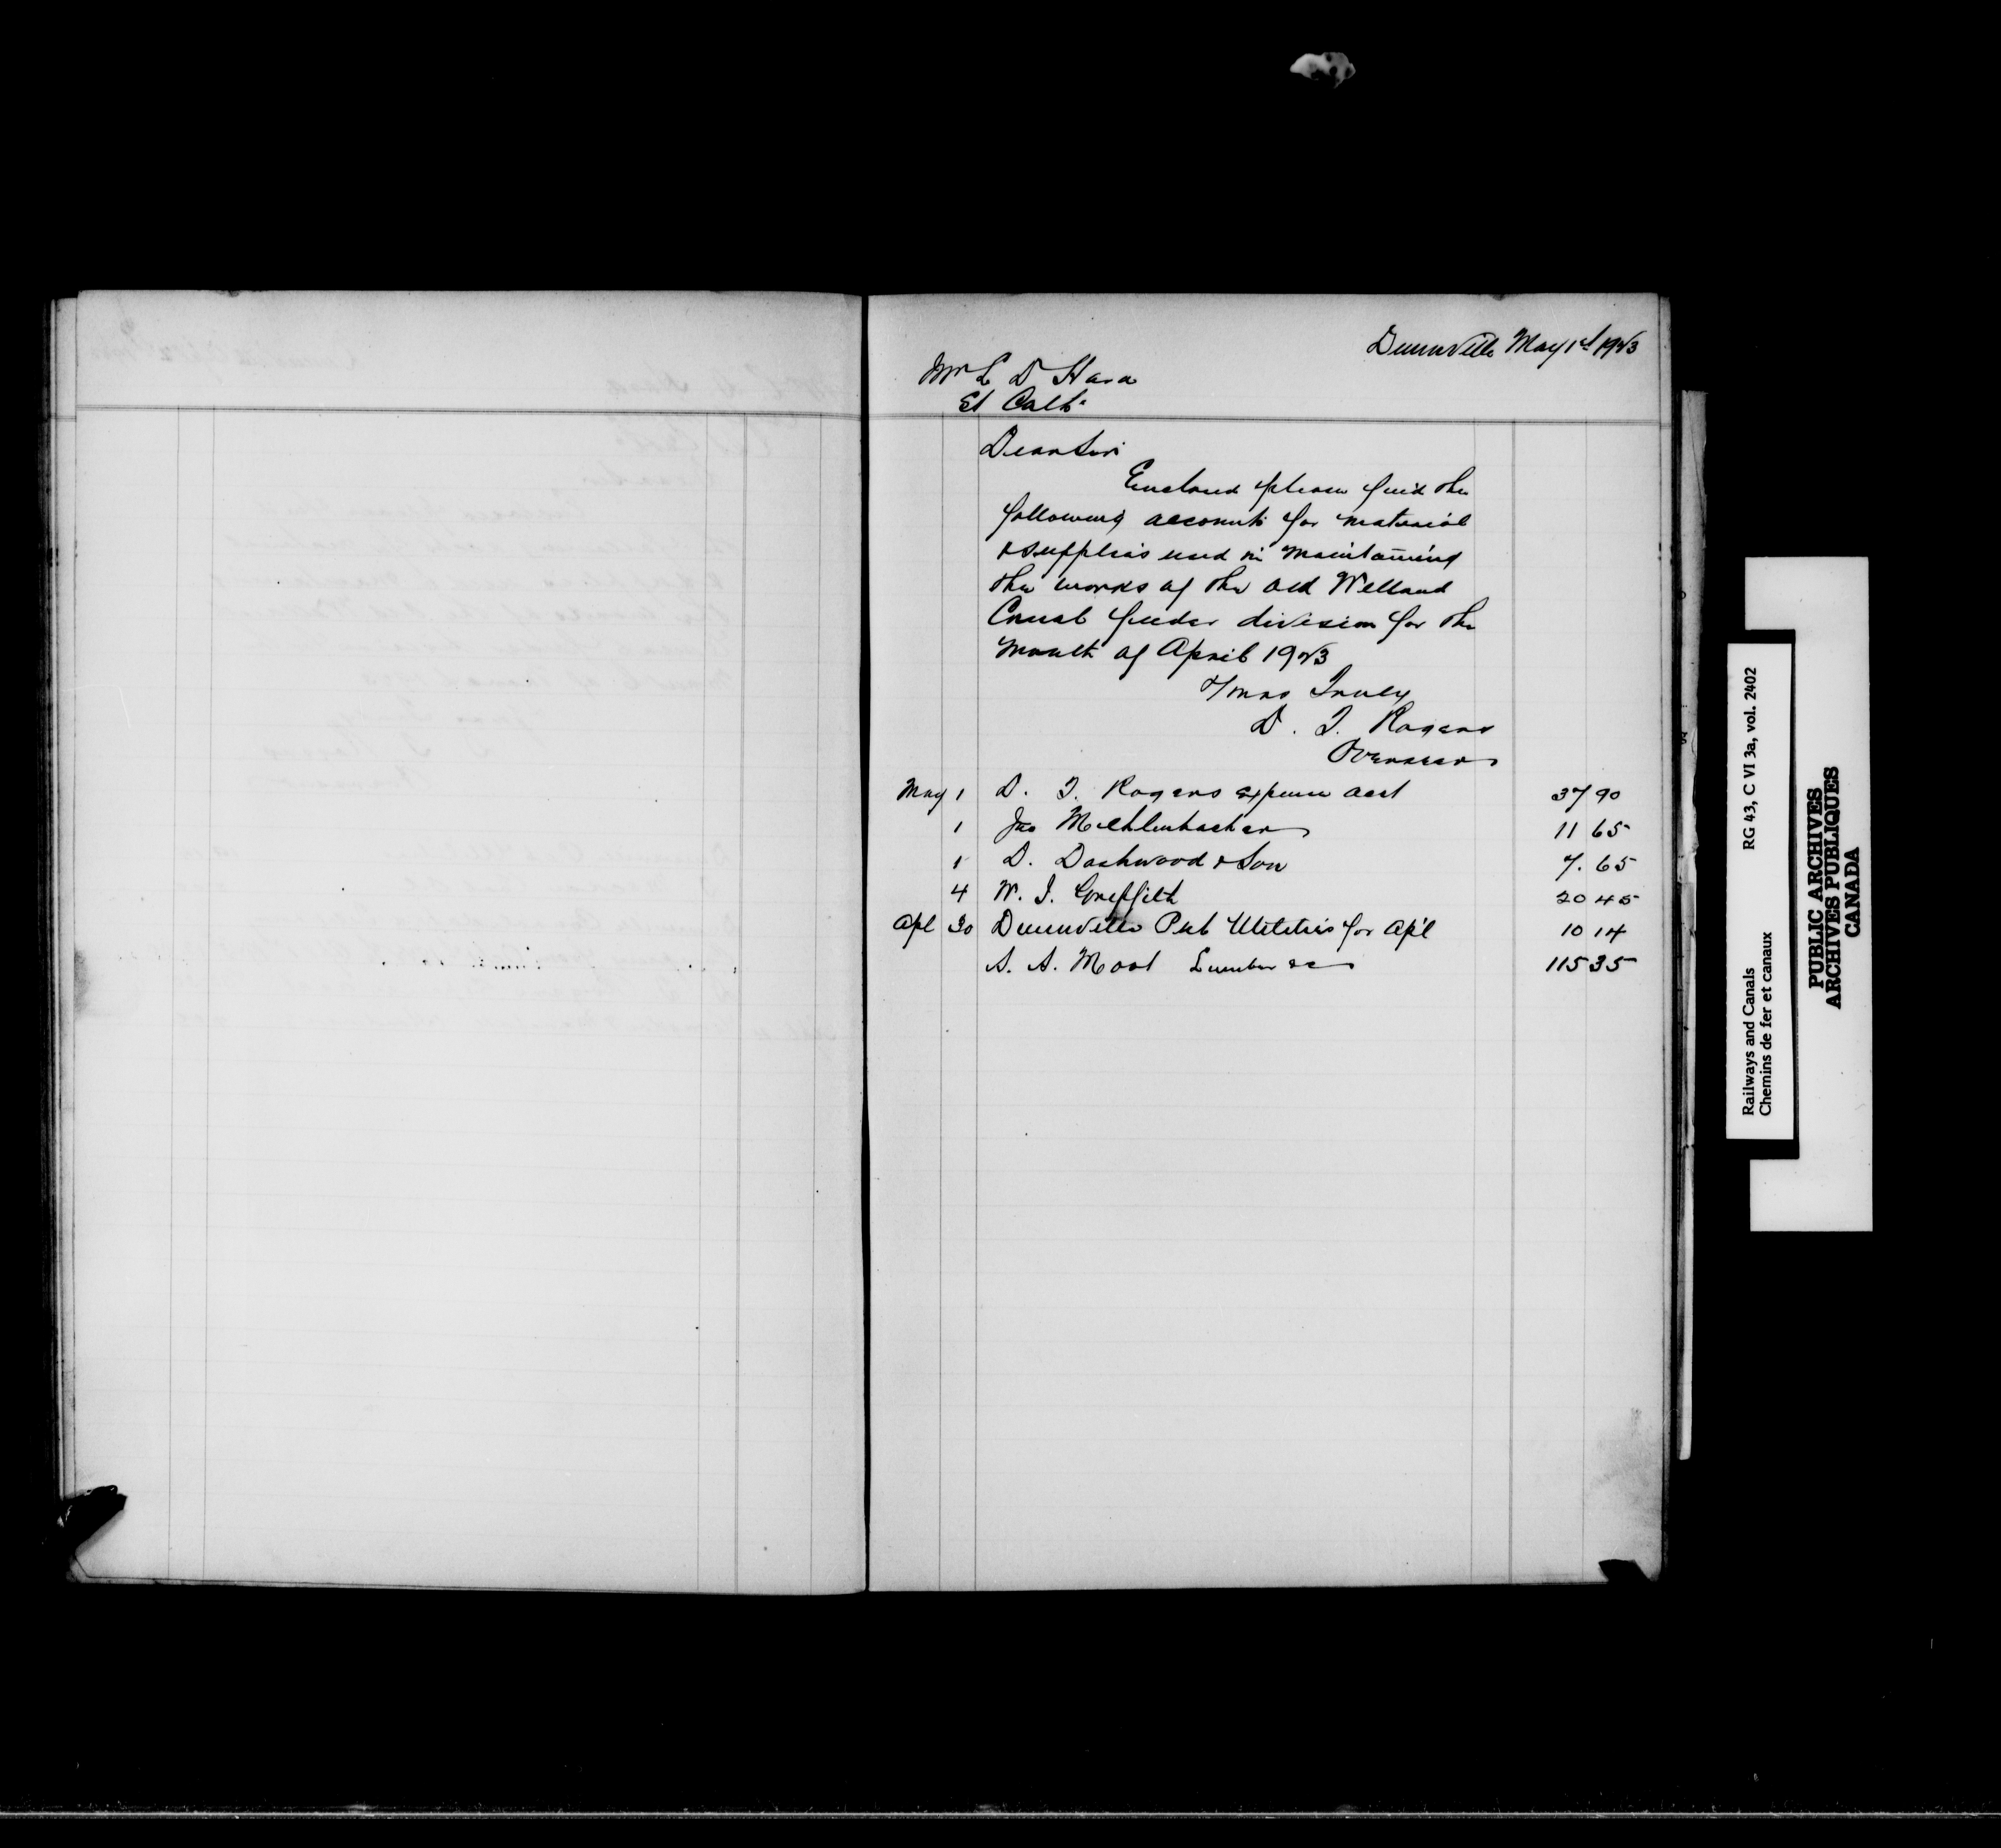 Dunnville May 1st 1923
Mr L D Hara
St Cath.
Dear Sir
Enclosed please find the
following accounts for material
& supplies used in maintaining
the works of the old Welland
Canal feeder division for the
month of April 1923
Yours Truly
D. T. Rogers
Overseer
May 1 D. T. Rogers expense acct 37 90
1 Jno Mehlenbacher 11 65
1 D. Dashwood & Son 7. 65
4 W. J. Griffith 20 45
Apl 30 Dunnville Pub Utilities for Apl 10 14
S. A. Moot Lumber &c 115 35
Railways and Canals RG 43, C VI 3a, vol. 2402
Chemins de fer et canaux
PUBLIC ARCHIVES
ARCHIVES PUBLIQUES
CANADA